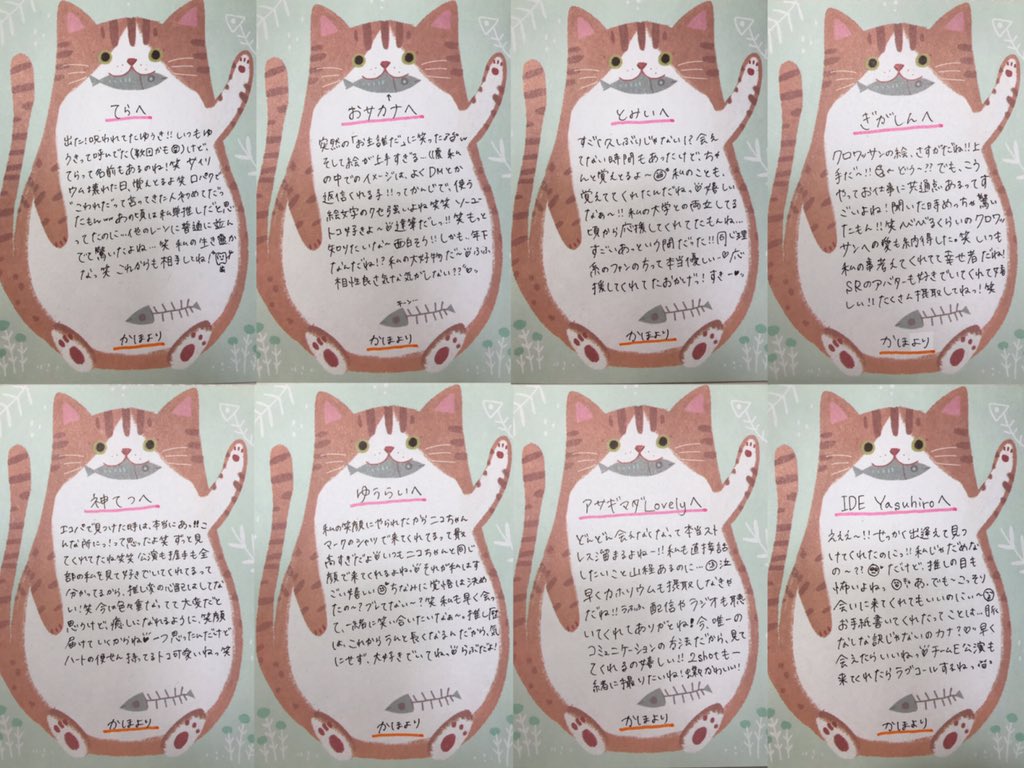 てらへ
出た!呪われてたゆうき!!いつもゆ
うきって呼んでた(敬図かも)けど、
てらって名前もあるのね!笑 サイリ
ウム壊れた日、覚えてるよ笑 口パクで
"こわれた"って言ってきたん初めてだっ
たもんwwあの頃は私単推しだと思
ってたのに…(他のレーンに普通に並ん
でて驚いたよね…笑 私の生き霊か
なっ。笑 これからも相手してね♪
かほより
おサカナへ
突然の「お主誰だ」に笑ったよww
そしてお絵が上手すぎる…
の中でのイメージは、よくDMとか
返信くれる子!!ってかんじで、使う
絵文字のクセ強いよね笑笑 ソーユー
トコ好きだよ 達筆だしっ!!笑 もっと
知りたいな〜面白そう!!しかも…年下
なんだね!?私の大好物だ〜 ふふ
相性良さ気な気がしない??っ
チーン…
かほより
とみいへ
すごく久しぶりじゃない!?会え
てない時間もあったけど、ちゃ
んと覚えてるよー 私のことも、
覚えててくれたんだね。嬉しい
なぁ〜!!私の大学との両立してる
頃から応援してくれてたもんね…
すごいあっという間だった!!同じ理
系のファンの方って本当嬉しい…♡応
援してくれてたおかげっ!すきー♥っ
かほより
ぎがしんへ
クロワッサンの絵、さすがだね!!上
手だ〜!!へどう〜??でも、こう
やってお仕事に共通点あるってす
ごいよね!聞いた時めっちゃ驚い
たもん!!笑 くるくらいのクロワッ
サンへの愛も納得したっ笑 いつも
私の事考えてくれてて幸せ者だね!
SRのアバターも好きでいてくれて嬉
しい!!たくさん摂取してねっ!笑
かほより
神てつへ
エコパで見つけた時は、本当にあっ!!!こ
んな所にっ!って思ったよ笑 ずっと見
てたしね笑笑 公演も握手も全
部の私を見て好きでいてくれてるって
分かってるから、推し家のご心配はしてな
い!笑 今は色々重なってて大変だと
思うけど、癒しになれるように、笑顔
届けていくからね♥一つ思ったんだけど
ハートの便せん持ってるトコ可愛いねっ笑
かほより
ゆうらいへ
私の笑顔にやられたからニコちゃん
マークのシャツで来てくれてるって最
高すぎだよ いつもニコちゃんと同じ
顔で来てくれるよね。それが私はす
ごい嬉しい ちなみに覚悟は決め
たの〜?ブレてない〜?笑 私も早く会っ
て、一緒に笑い合いたいなぁ〜。推し歴
は、これからうんと長くなるんだから、気
にせず、大好きでいてね。らぶだよ!
かほより
アサギマダLovelyへ
どんどん会えなくなって本当スト
レス溜まるよねー!!私も直接話
したいこと山程あるのに…泣
早くカホリウムも摂取しなきゃ
だね!!ラホット配信やラジオも聴
いてくれてありがとね!今、唯一の
コミュニケーションの方法だから、見て
てくれるの嬉しい!!2shotも一
緒に撮りたいね!蝶かわいい!
かほより
IDE Yasuhiroへ
ええぇ〜!!せっかく出逢えて見つ
けてくれたのにっ!!私じゃだめな
の〜?? だけど、推しの目も
怖いよねっ あ。でも〜こっそり
会いに来てくれてもいいのにぃ〜
お手紙書いてくれたってことは…脈
なしな訳じゃないのカナ?♡早く
会えたらいいね。チームE公演も
来てくれたらラブコールするねっ
かほより